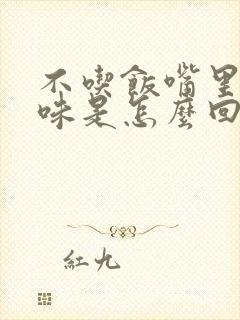 不喫飯嘴里
味是怎麼回
紅九